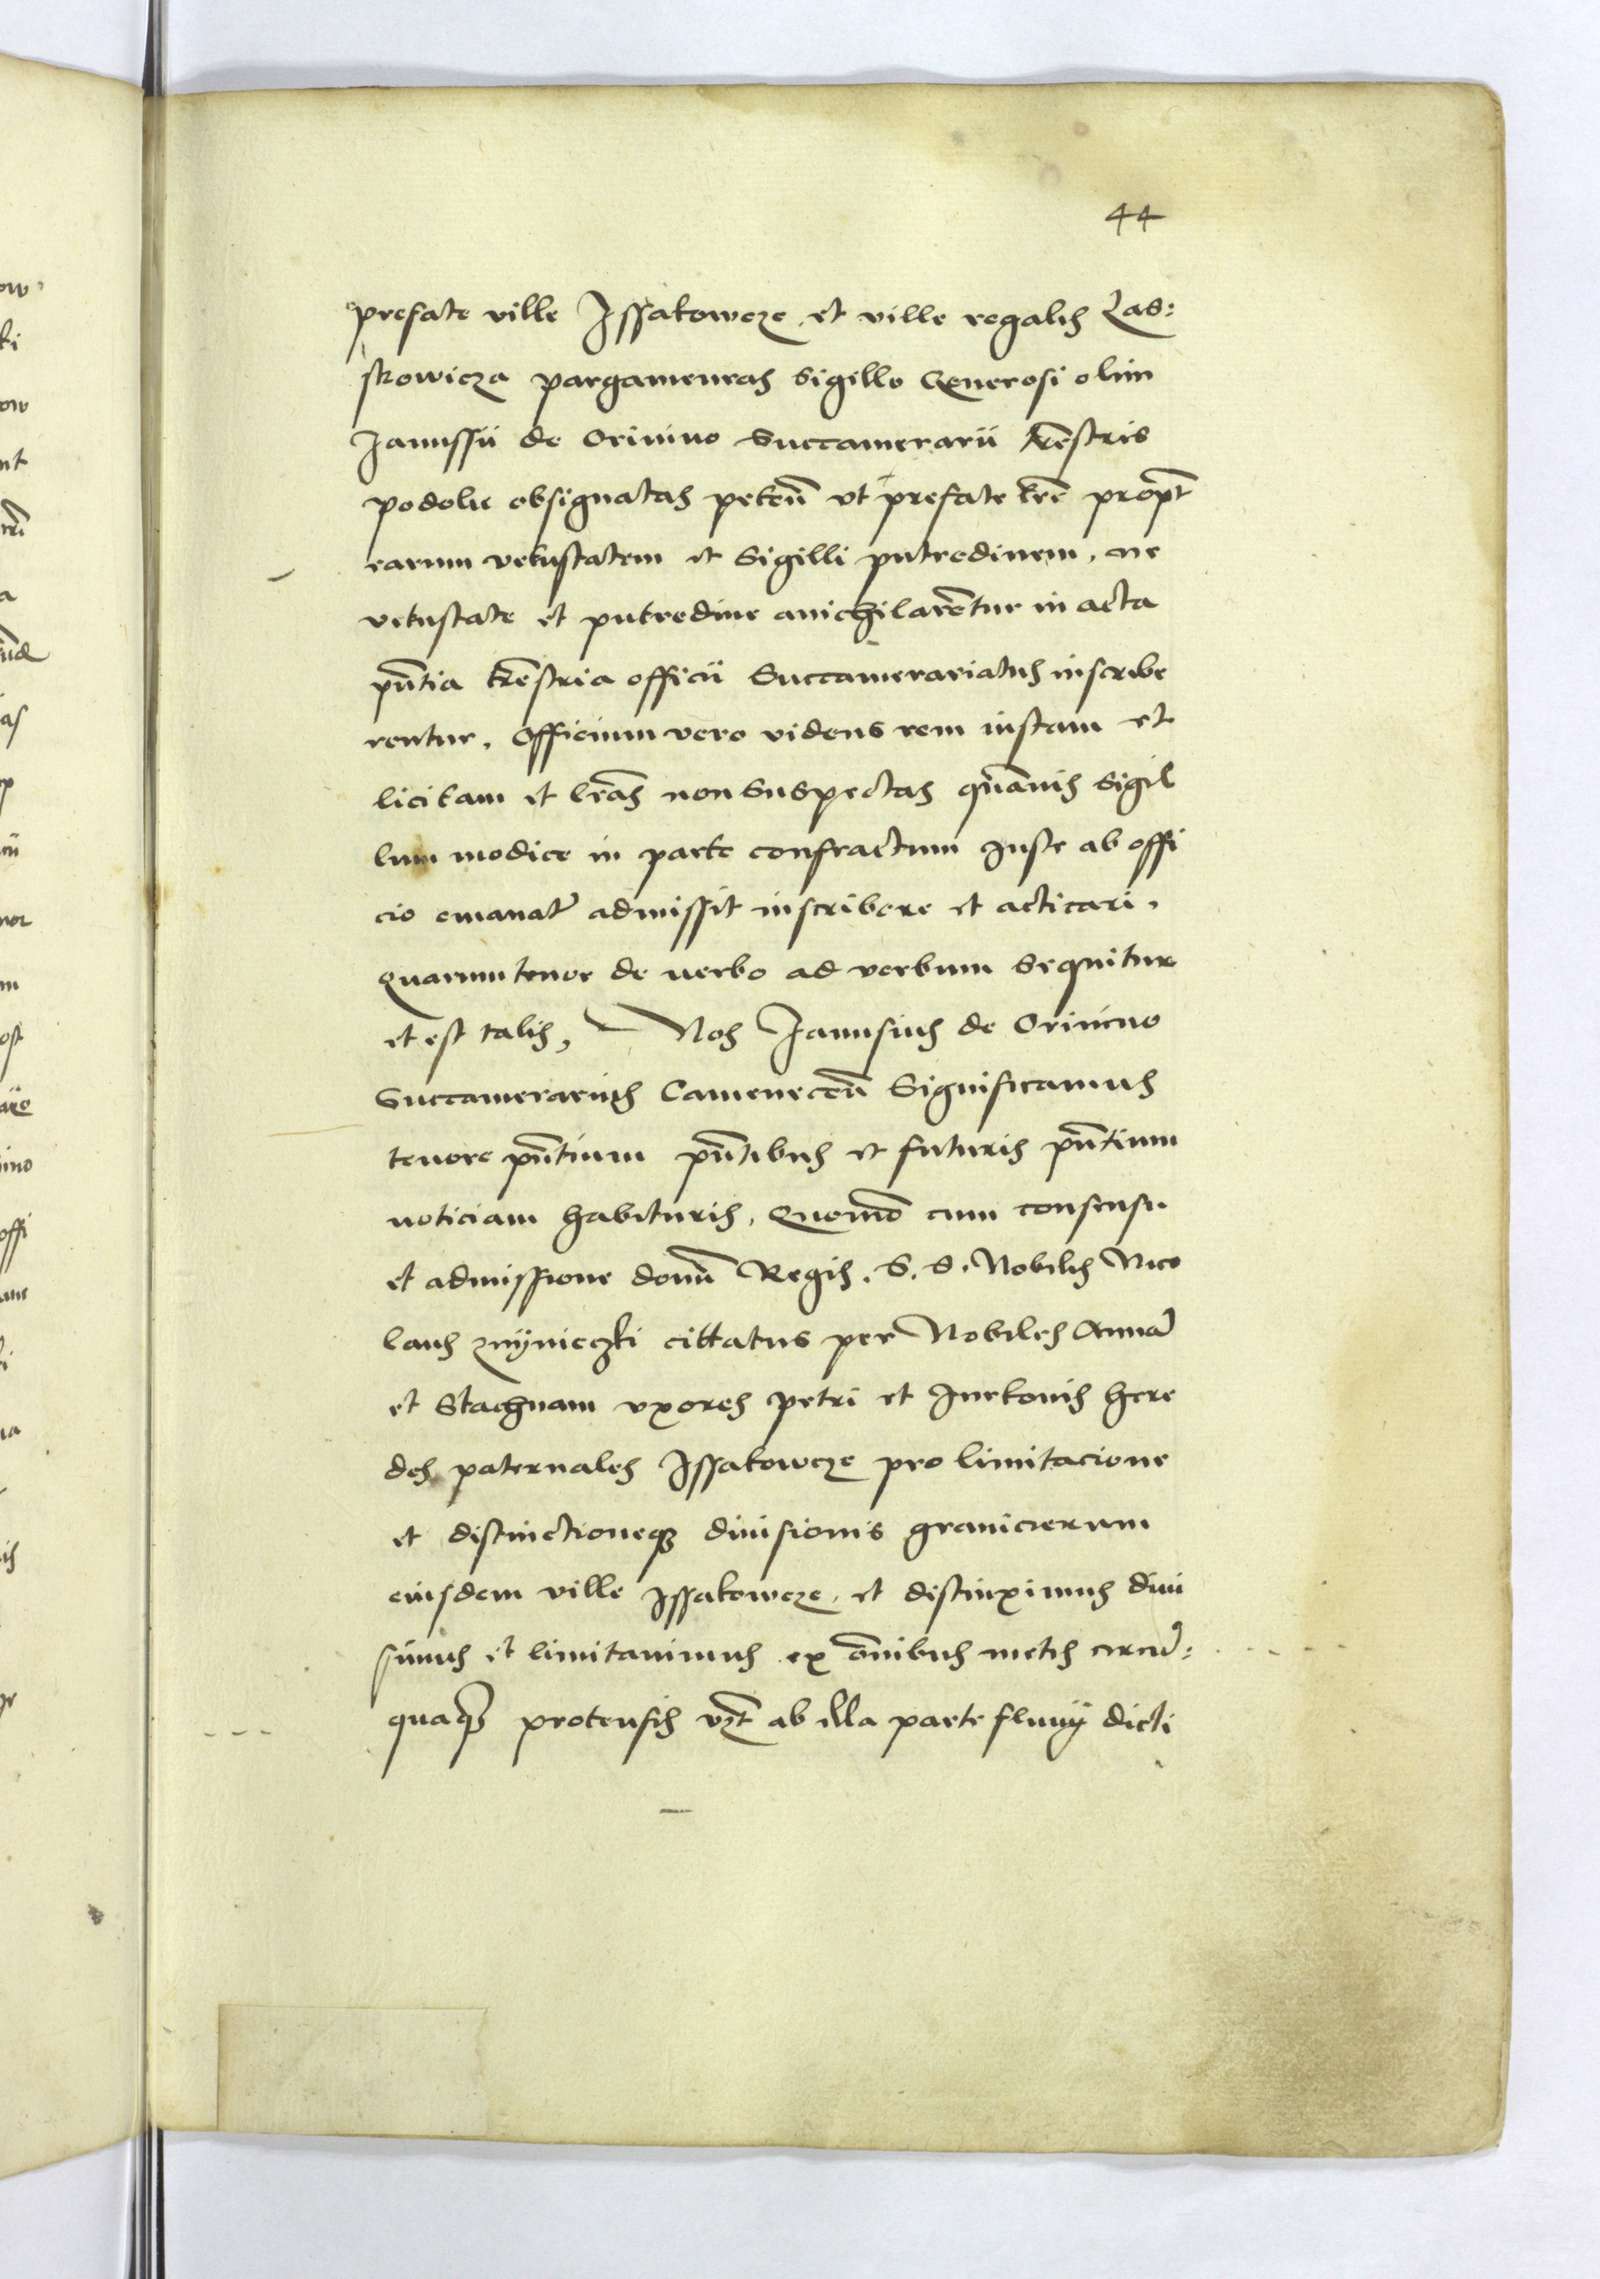 44
prefate ville Issakowcze et ville regalis Las:
skowicza pargameneas Sigillo Generosi olim
Janussii de Orinino Succamerarii trēstris
podolie obsignatas petēn̄ vt prefate lrē propt̄
earum vetustatem et Sigilli putredinem, ne
vetustate et putredine anichilarētur in acta
pn̄tia trēstria officii Succamerariatus inscribe
rentur. Officium vero videns rem iustam et
licitam et lrās non suspectas qūamvis Sigil
lum modice in parte confractum iuste ab offi
cio emanat̄ admissit inscribere et acticari.
Quarum tenor de verbo ad verbum sequitur
et est talis, Nos Janusius de Orinino
Succamerarius Cameneceñ Significamus
tenore pn̄tium pn̄tibus et futuris pn̄tium
noticiam habituris, Quomō cum consensu
et admissione domī Regis. S. d. Nobilis Nico
laus znÿnieczki cittatus per Nobiles Annā
et Stachnam vxores petri et Iurkonis here
des paternales Issakowcze pro limitacione
et distinctioneqꝫ diuisionis granicierum
eiusdem ville Issakowcze, et distinximus diui
simus et limitauimus ex ōnibus metis circū:
quaqꝫ protensis vꝫt ab illa parte fluuÿ dicti